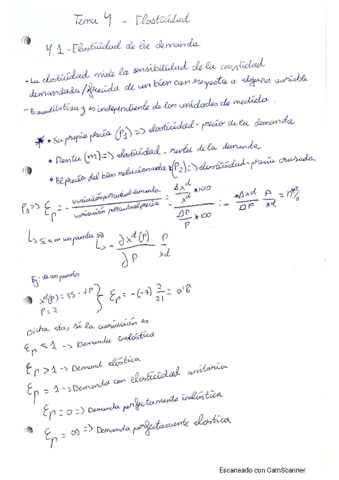 Tema 4 - Elasticidad
4.1 - Elasticidad de la demanda
- La elasticidad mide la sensibilidad de la cantidad
demandada/ofrecida de un bien con respecto a alguna variable
- Es cuantitativa y es independiente de las unidades de medida.
* • Su propio precio (P1) => elasticidad - precio de la demanda
• Renta (m) => elasticidad - renta de la demanda
• El precio del bien relacionado (P2) => elasticidad - precio cruzada
P1 => Ep = - variación porcentual demanda / variación porcentual precio = - (Δxd / xd * 100) / (ΔP / P * 100) = - Δxd / ΔP · P / xd = nº%
↳ Si es un punto => ↳ - ∂xd(P) / ∂P · P / xd
Ej: de un punto
xd(P) = 35 - 7P
P = 2 } Ep = - (-7) 2/21 = 0'6
Dicho esto, si la variación es
Ep < 1 -> Demanda inelástica
Ep > 1 -> Demand elástica
Ep = 1 -> Demanda con elasticidad unitaria
Ep = 0 => Demanda perfectamente inelástica
Ep = ∞ => Demanda perfectamente elastica
Escaneado con CamScanner